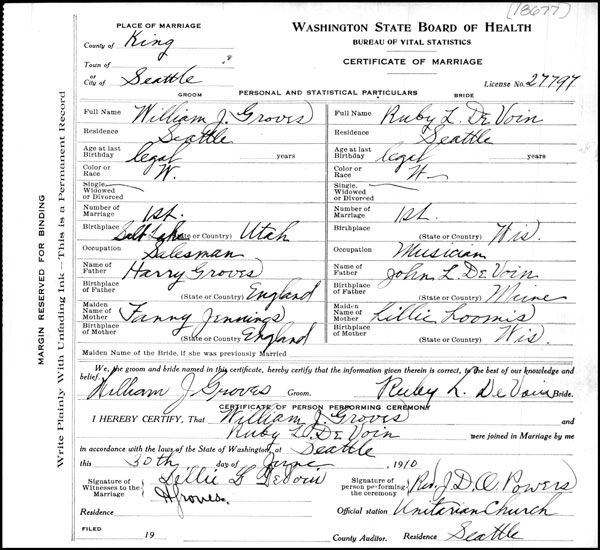 (18677)
PLACE OF MARRIAGE
WASHINGTON STATE BOARD OF HEALTH
County of King
BUREAU OF VITAL STATISTICS
Town of
or
City of Seattle
CERTIFICATE OF MARRIAGE
License No. 27797
GROOM PERSONAL AND STATISTICAL PARTICULARS BRIDE
Full Name William J. Groves Full Name Ruby L. De Voin
Residence Seattle Residence Seattle
Age at last Birthday legal years Age at last Birthday legal years
Color or Race W. Color or Race W
Single, Widowed or Divorced Single, Widowed or Divorced
Number of Marriage 1st. Number of Marriage 1st.
Birthplace Salt Lake (State or Country) Utah Birthplace (State or Country) Wis.
Occupation Salesman Occupation Musician
Name of Father Harry Groves Name of Father John L. De Voin
Birthplace of Father (State or Country) England Birthplace of Father (State or Country) Maine
Maiden Name of Mother Fanny Jennings Maiden Name of Mother Lillie Loomis
Birthplace of Mother (State or Country) England Birthplace of Mother (State or Country) Wis.
Maiden Name of the Bride, if she was previously Married
We, the groom and bride named in this certificate, hereby certify that the information given therein is correct, to the best of our knowledge and
belief.
William J Groves Groom. Ruby L. De Voin Bride.
CERTIFICATE OF PERSON PERFORMING CEREMONY
I HEREBY CERTIFY, That William J. Groves and
Ruby L. De Voin were joined in Marriage by me
in accordance with the laws of the State of Washington, at Seattle
this 30th day of June 1910
Signature of Witnesses to the Marriage Lillie L Devoin
H Groves
Signature of person performing the ceremony Rev. J. D. O. Powers
Residence Official station Unitarian Church
FILED 19 County Auditor. Residence Seattle
MARGIN RESERVED FOR BINDING
Write Plainly With Unfading Ink—This is a Permanent Record